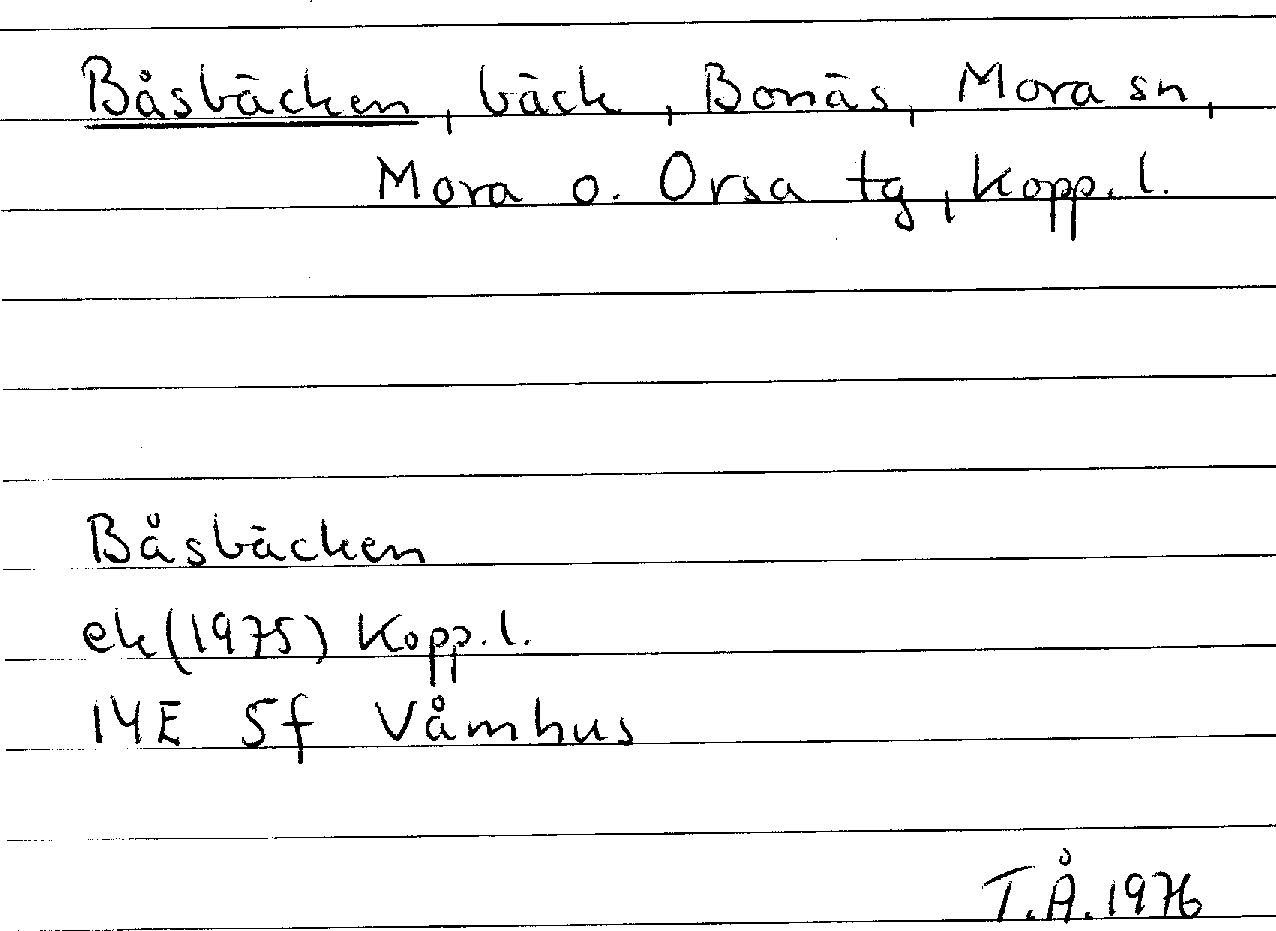 Båsbäcken, bäck, Bonäs, Mora sn,
Mora o. Orsa tg, Kopp. l.
Båsbäcken
ek (1975) Kopp. l.
14E 5f Våmhus
T.Å. 1976